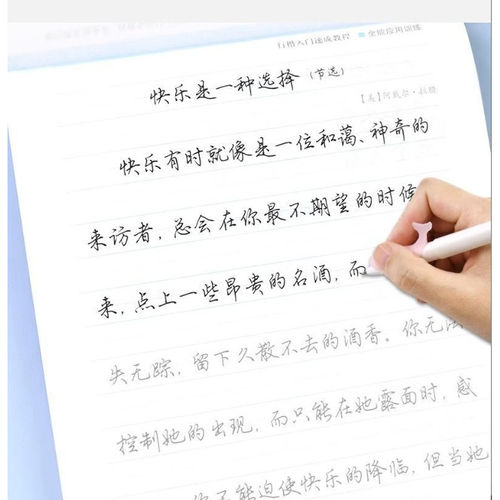 行楷入门速成教程 全能应用训练
快乐是一种选择(节选)
【美】
快乐有时就像是一位和蔼、神奇的
来访者,总会在你最不期望的时候
来,点上一些昂贵的名酒,而
失无踪,留下久散不去的酒香。你无法
控制她的出现,而只能在她露面时,感
不能迫使快乐的降临,但当她